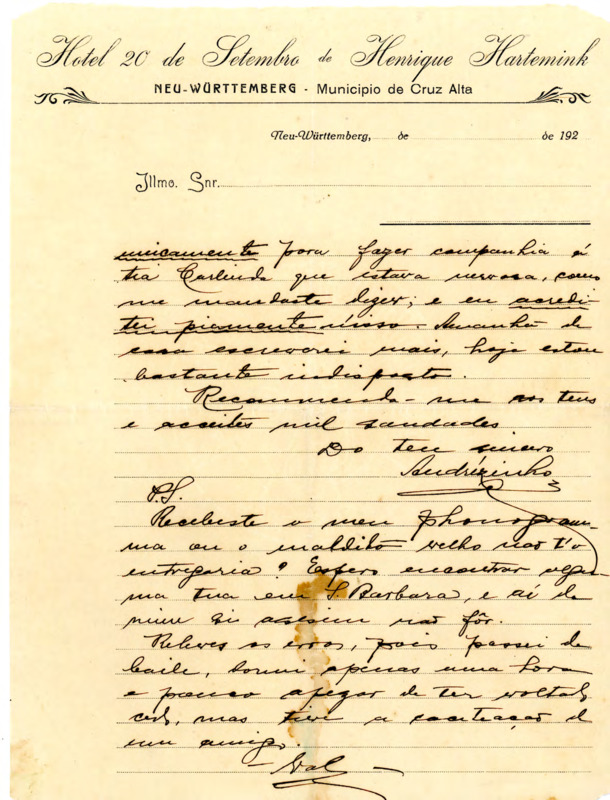 Hotel 20 de Setembro de Henrique Hartemink
NEU-WÜRTTEMBERG - Municipio de Cruz Alta
Neu-Württemberg, de de 192
Illmo. Snr.
unicamente para fazer companhia á
tia Carlinda que estava nervosa, como
me mandaste dizer; e eu acredi-
tei piamente nisso. Amanhã de
casa escreverei mais, hoje estou
bastante indisposto.
Recommenda-me aos teus
e acceites mil saudades
Do teu sincero
Andrézinho
P.S.
Recebeste o meu phonogram-
ma ou o maldito velho não t'o
entregaria? Espero encontrar algu-
ma tua em S. Barbara, e ai de
mim si assim não fôr.
Releves os erros, pois passei de
baile, dormi apenas uma hora
e pouco apezar de ter voltado
cedo, mas tive a de
um amigo.